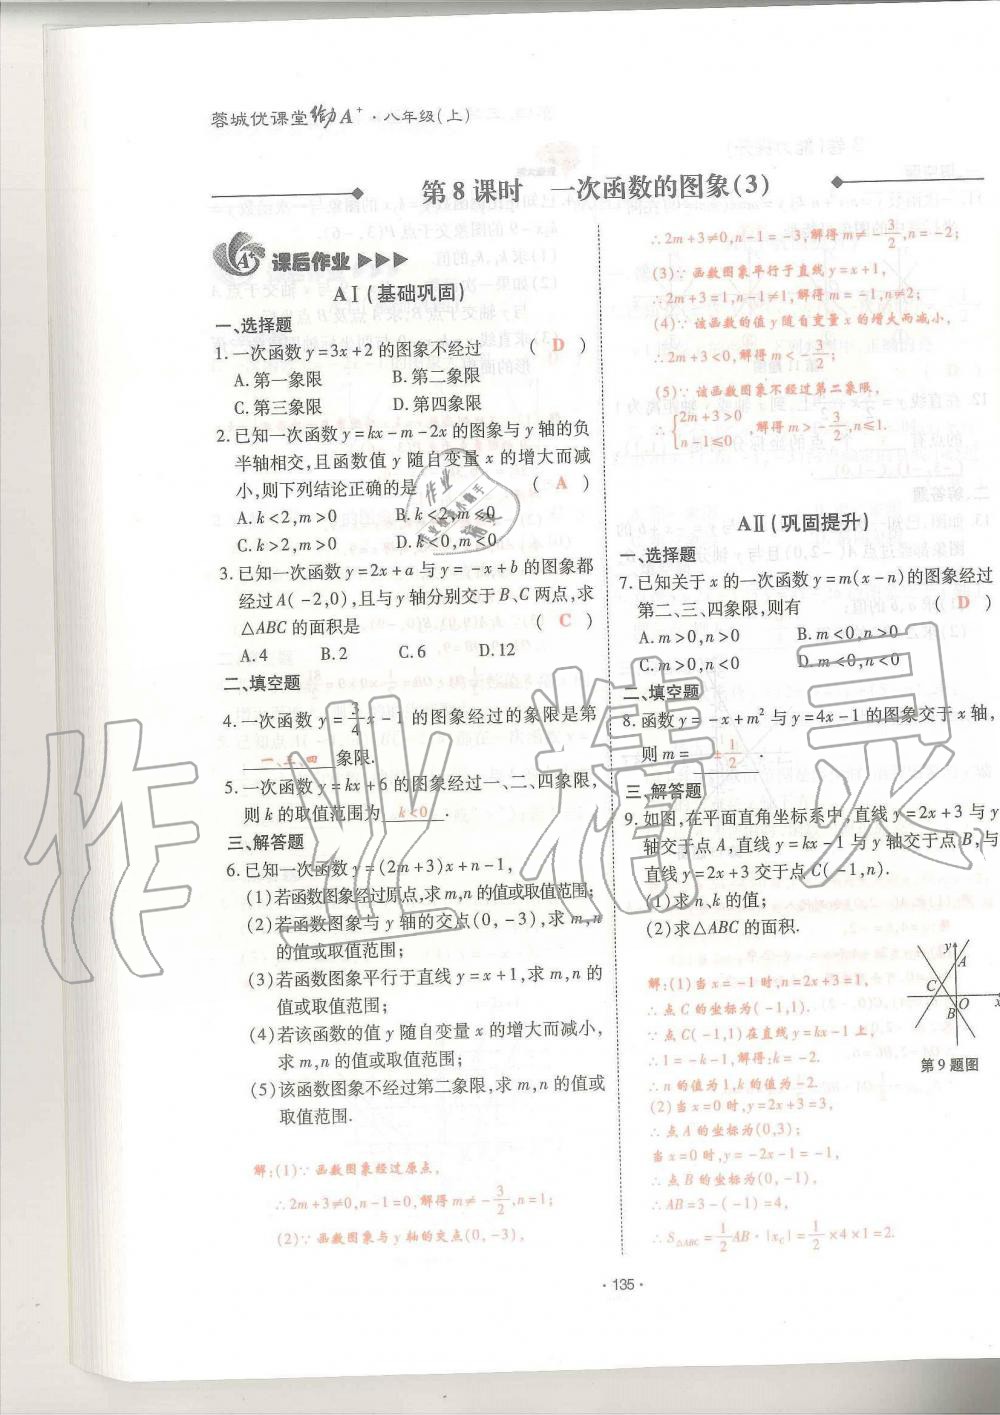 蓉城优课堂给力A⁺·八年级(上)
第8课时 一次函数的图象(3)
A⁺ 课后作业
AⅠ(基础巩固)
一、选择题
1.一次函数y=3x+2的图象不经过 ( D )
A.第一象限 B.第二象限
C.第三象限 D.第四象限
2.已知一次函数y=kx-m-2x的图象与y轴的负
半轴相交,且函数值y随自变量x的增大而减
小,则下列结论正确的是 ( A )
A.k<2,m>0 B.k<2,m<0
C.k>2,m>0 D.k<0,m<0
3.已知一次函数y=2x+a与y=-x+b的图象都
经过A(-2,0),且与y轴分别交于B、C两点,求
△ABC的面积是 ( C )
A.4 B.2 C.6 D.12
二、填空题
4.一次函数y=3/4x-1的图象经过的象限是第
一、三、四 象限.
5.一次函数y=kx+6的图象经过一、二、四象限,
则k的取值范围为 k<0 .
三、解答题
6.已知一次函数y=(2m+3)x+n-1,
(1)若函数图象经过原点,求m,n的值或取值范围;
(2)若函数图象与y轴的交点(0,-3),求m,n
的值或取值范围;
(3)若函数图象平行于直线y=x+1,求m,n的
值或取值范围;
(4)若该函数的值y随自变量x的增大而减小,
求m,n的值或取值范围;
(5)该函数图象不经过第二象限,求m,n的值或
取值范围.
解:(1)∵函数图象经过原点,
∴2m+3≠0,n-1=0,解得m≠-3/2,n=1;
(2)∵函数图象与y轴的交点(0,-3),
∴2m+3≠0,n-1=-3,解得m≠-3/2,n=-2;
(3)∵函数图象平行于直线y=x+1,
∴2m+3=1,n-1≠1,解得m=-1,n≠2;
(4)∵该函数的值y随自变量x的增大而减小,
∴2m+3<0,解得m<-3/2;
(5)∵该函数图象不经过第二象限,
∴{2m+3>0
n-1≤0,解得m>-3/2,n≤1.
AⅡ(巩固提升)
一、选择题
7.已知关于x的一次函数y=m(x-n)的图象经过
第二、三、四象限,则有 ( D )
A.m>0,n>0 B.m<0,n>0
C.m>0,n<0 D.m<0,n<0
二、填空题
8.函数y=-x+m²与y=4x-1的图象交于x轴,
则m= ±1/2
三、解答题
9.如图,在平面直角坐标系中,直线y=2x+3与y
轴交于点A,直线y=kx-1与y轴交于点B,与
直线y=2x+3交于点C(-1,n).
(1)求n、k的值;
(2)求△ABC的面积.
y
A
C
B
O
x
第9题图
解:(1)当x=-1时,n=2x+3=1,
∴点C的坐标为(-1,1).
∵点C(-1,1)在直线y=kx-1上,
∴1=-k-1,解得:k=-2.
∴n的值为1,k的值为-2.
(2)当x=0时,y=2x+3=3,
∴点A的坐标为(0,3);
当x=0时,y=-2x-1=-1,
∴点B的坐标为(0,-1),
∴AB=3-(-1)=4,
∴S△ABC=1/2AB·|xC|=1/2×4×1=2.
·135·
作业精灵